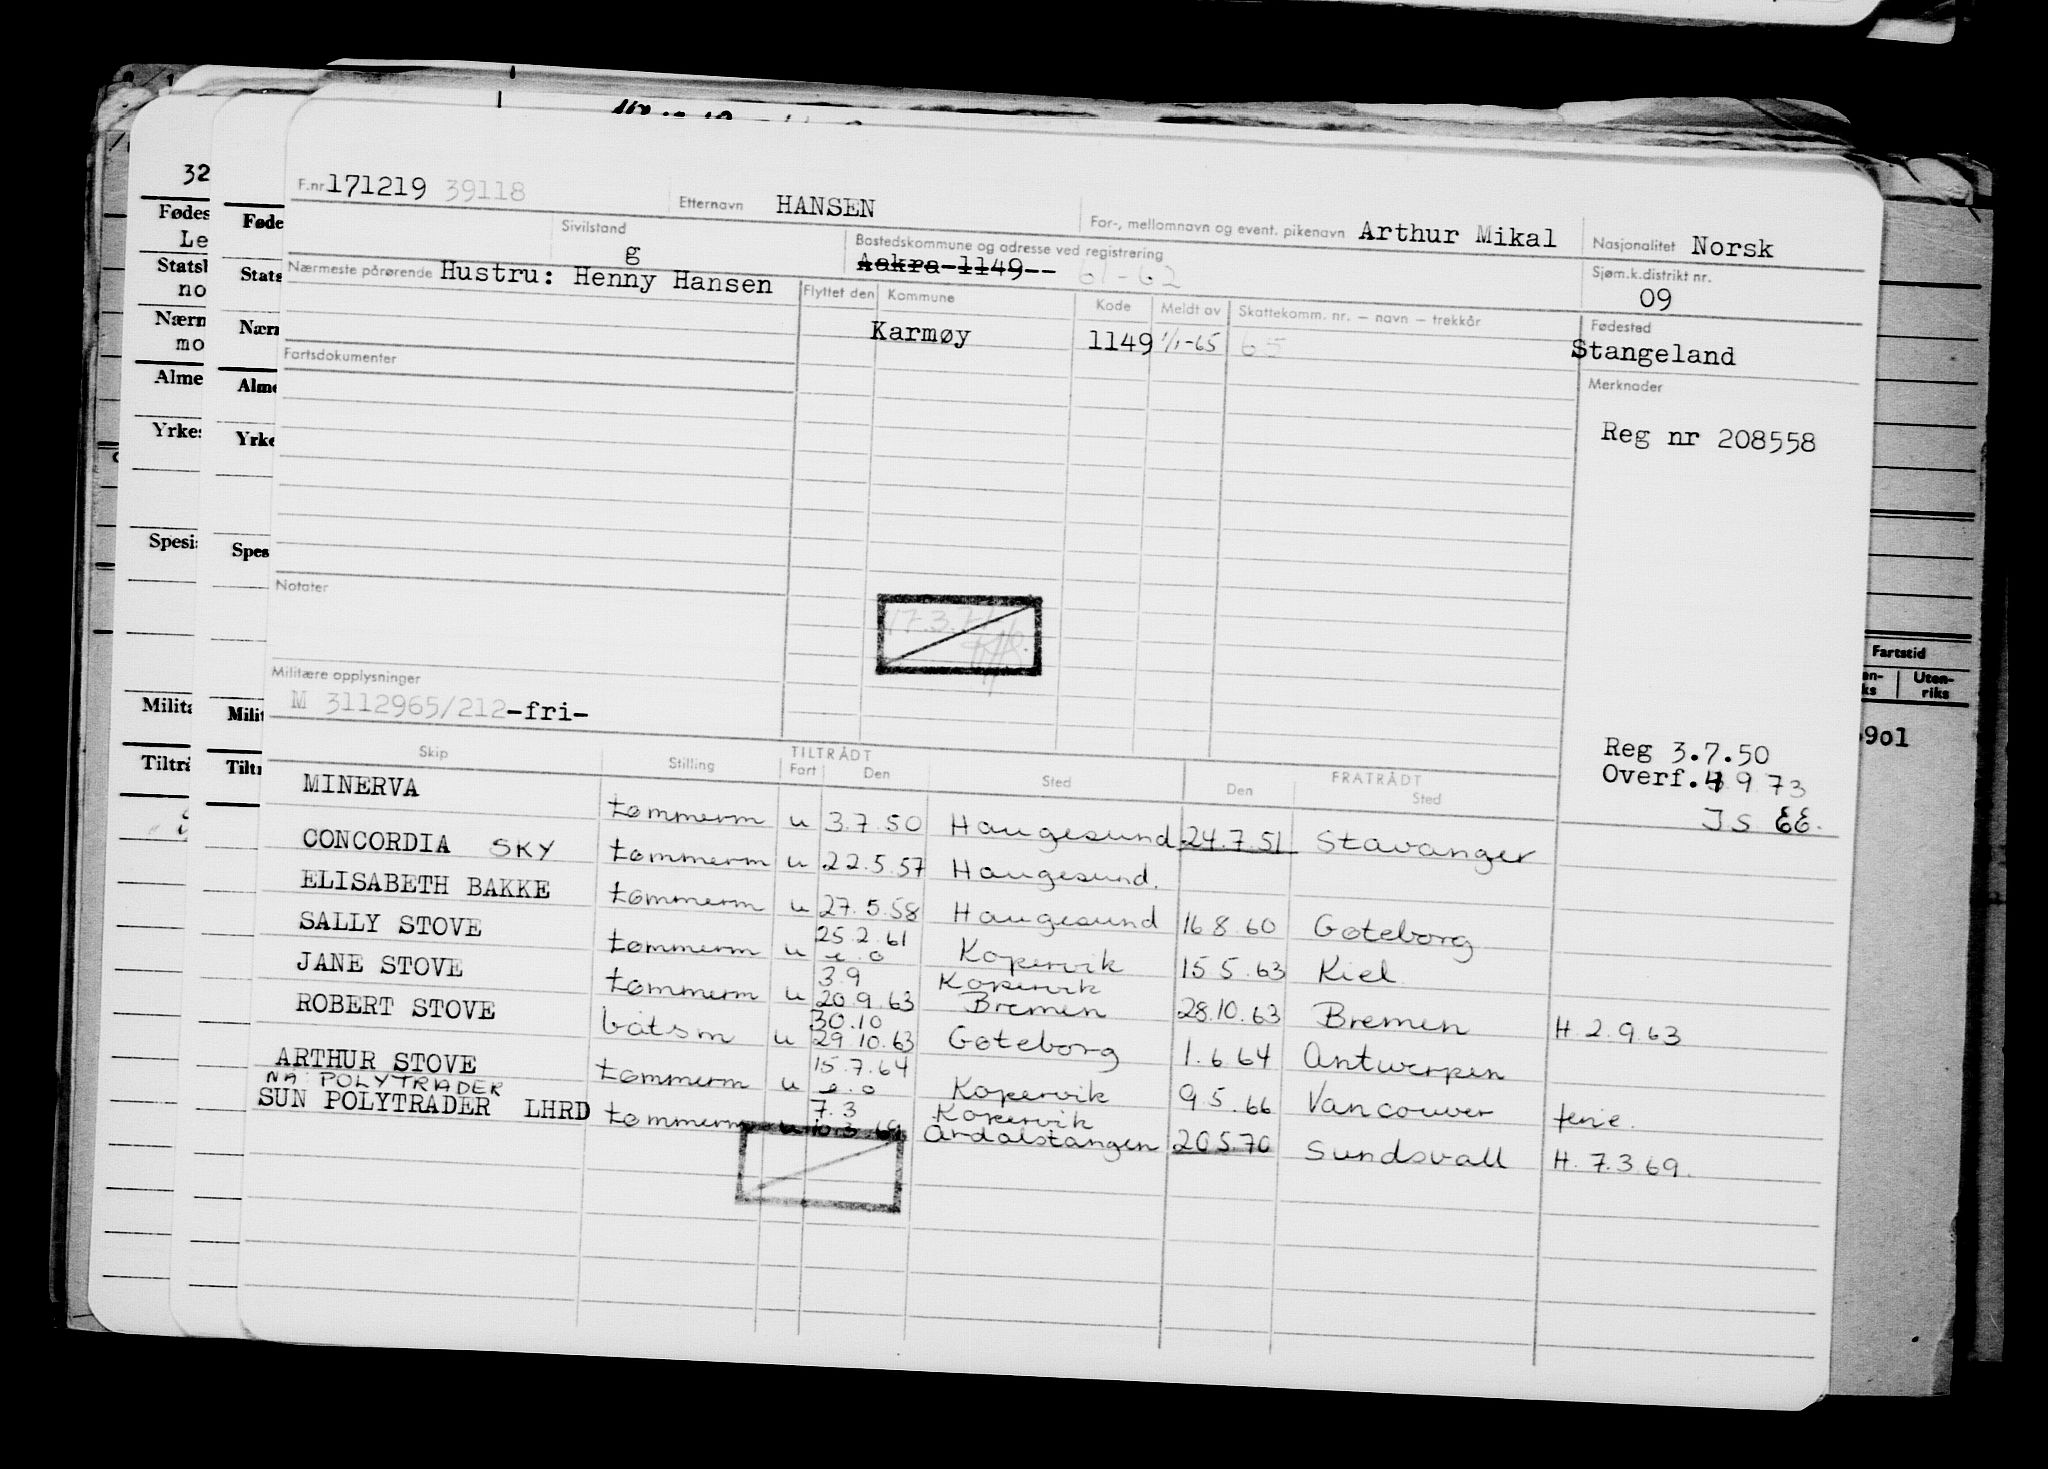 F.nr. 171219 39118 Etternavn HANSEN For-, mellomnavn og event. pikenavn Arthur Mikal Nasjonalitet Norsk
Sivilstand g Bostedskommune og adresse ved registrering Aakra-1149-- 61-62 Sjøm.k.distrikt nr. 09
Nærmeste pårørende Hustru: Henny Hansen Flyttet den Kommune Kode Meldt av Skattekomm. nr. – navn – trekkår Fødested
Karmøy 1149 1/1-65 65 Stangeland
Fartsdokumenter Merknader
Reg nr 208558
Notater
17.3.
Militære opplysninger
M 3112965/212-fri-
Reg 3.7.50
Overf. 4 9 73
JS EE.
Skip Stilling TILTRÅDT Fart Den Sted FRATRÅDT Den Sted
MINERVA tømmerm u 3.7.50 Haugesund 24.7.51 Stavanger
CONCORDIA SKY tømmerm u 22.5.57 Haugesund.
ELISABETH BAKKE tømmerm u 27.5.58 Haugesund 16 8.60 Gøteborg
SALLY STOVE tømmerm u 25.2.61 e.o Kopervik 15 5.63 Kiel
JANE STOVE tømmerm u 3.9 20.9.63 Kopervik Bremen 28.10.63 Bremen H. 2.9.63
ROBERT STOVE båtsm u 30.10 29 10.63 Gøteborg 1.6 64 Antwerpen
ARTHUR STOVE tømmerm u 15.7.64 e.o Kopervik 9.5.66 Vancouver ferie.
NÅ: POLYTRADER
SUN POLYTRADER LHRD tømmerm u 7.3 10.3.69 Kopervik Årdalstangen 20.5.70 Sundsvall H. 7.3 69.
32
Fødes
Le
Statsl
no
Nærm
mo
Alme
Yrkes
Spesi
Milita
Tiltrå
Føde
Stats
Nærm
Alme
Yrke
Spes
Milit
Tiltr
Fartstid
Uten-
riks
9o1